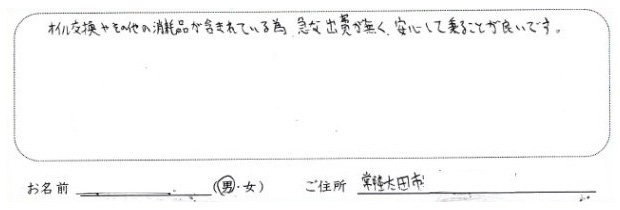 オイル交換やその他の消耗品が含まれている為、急な出費が無く、安心して乗ることが良いです。
お名前 (男・女) ご住所 常陸太田市